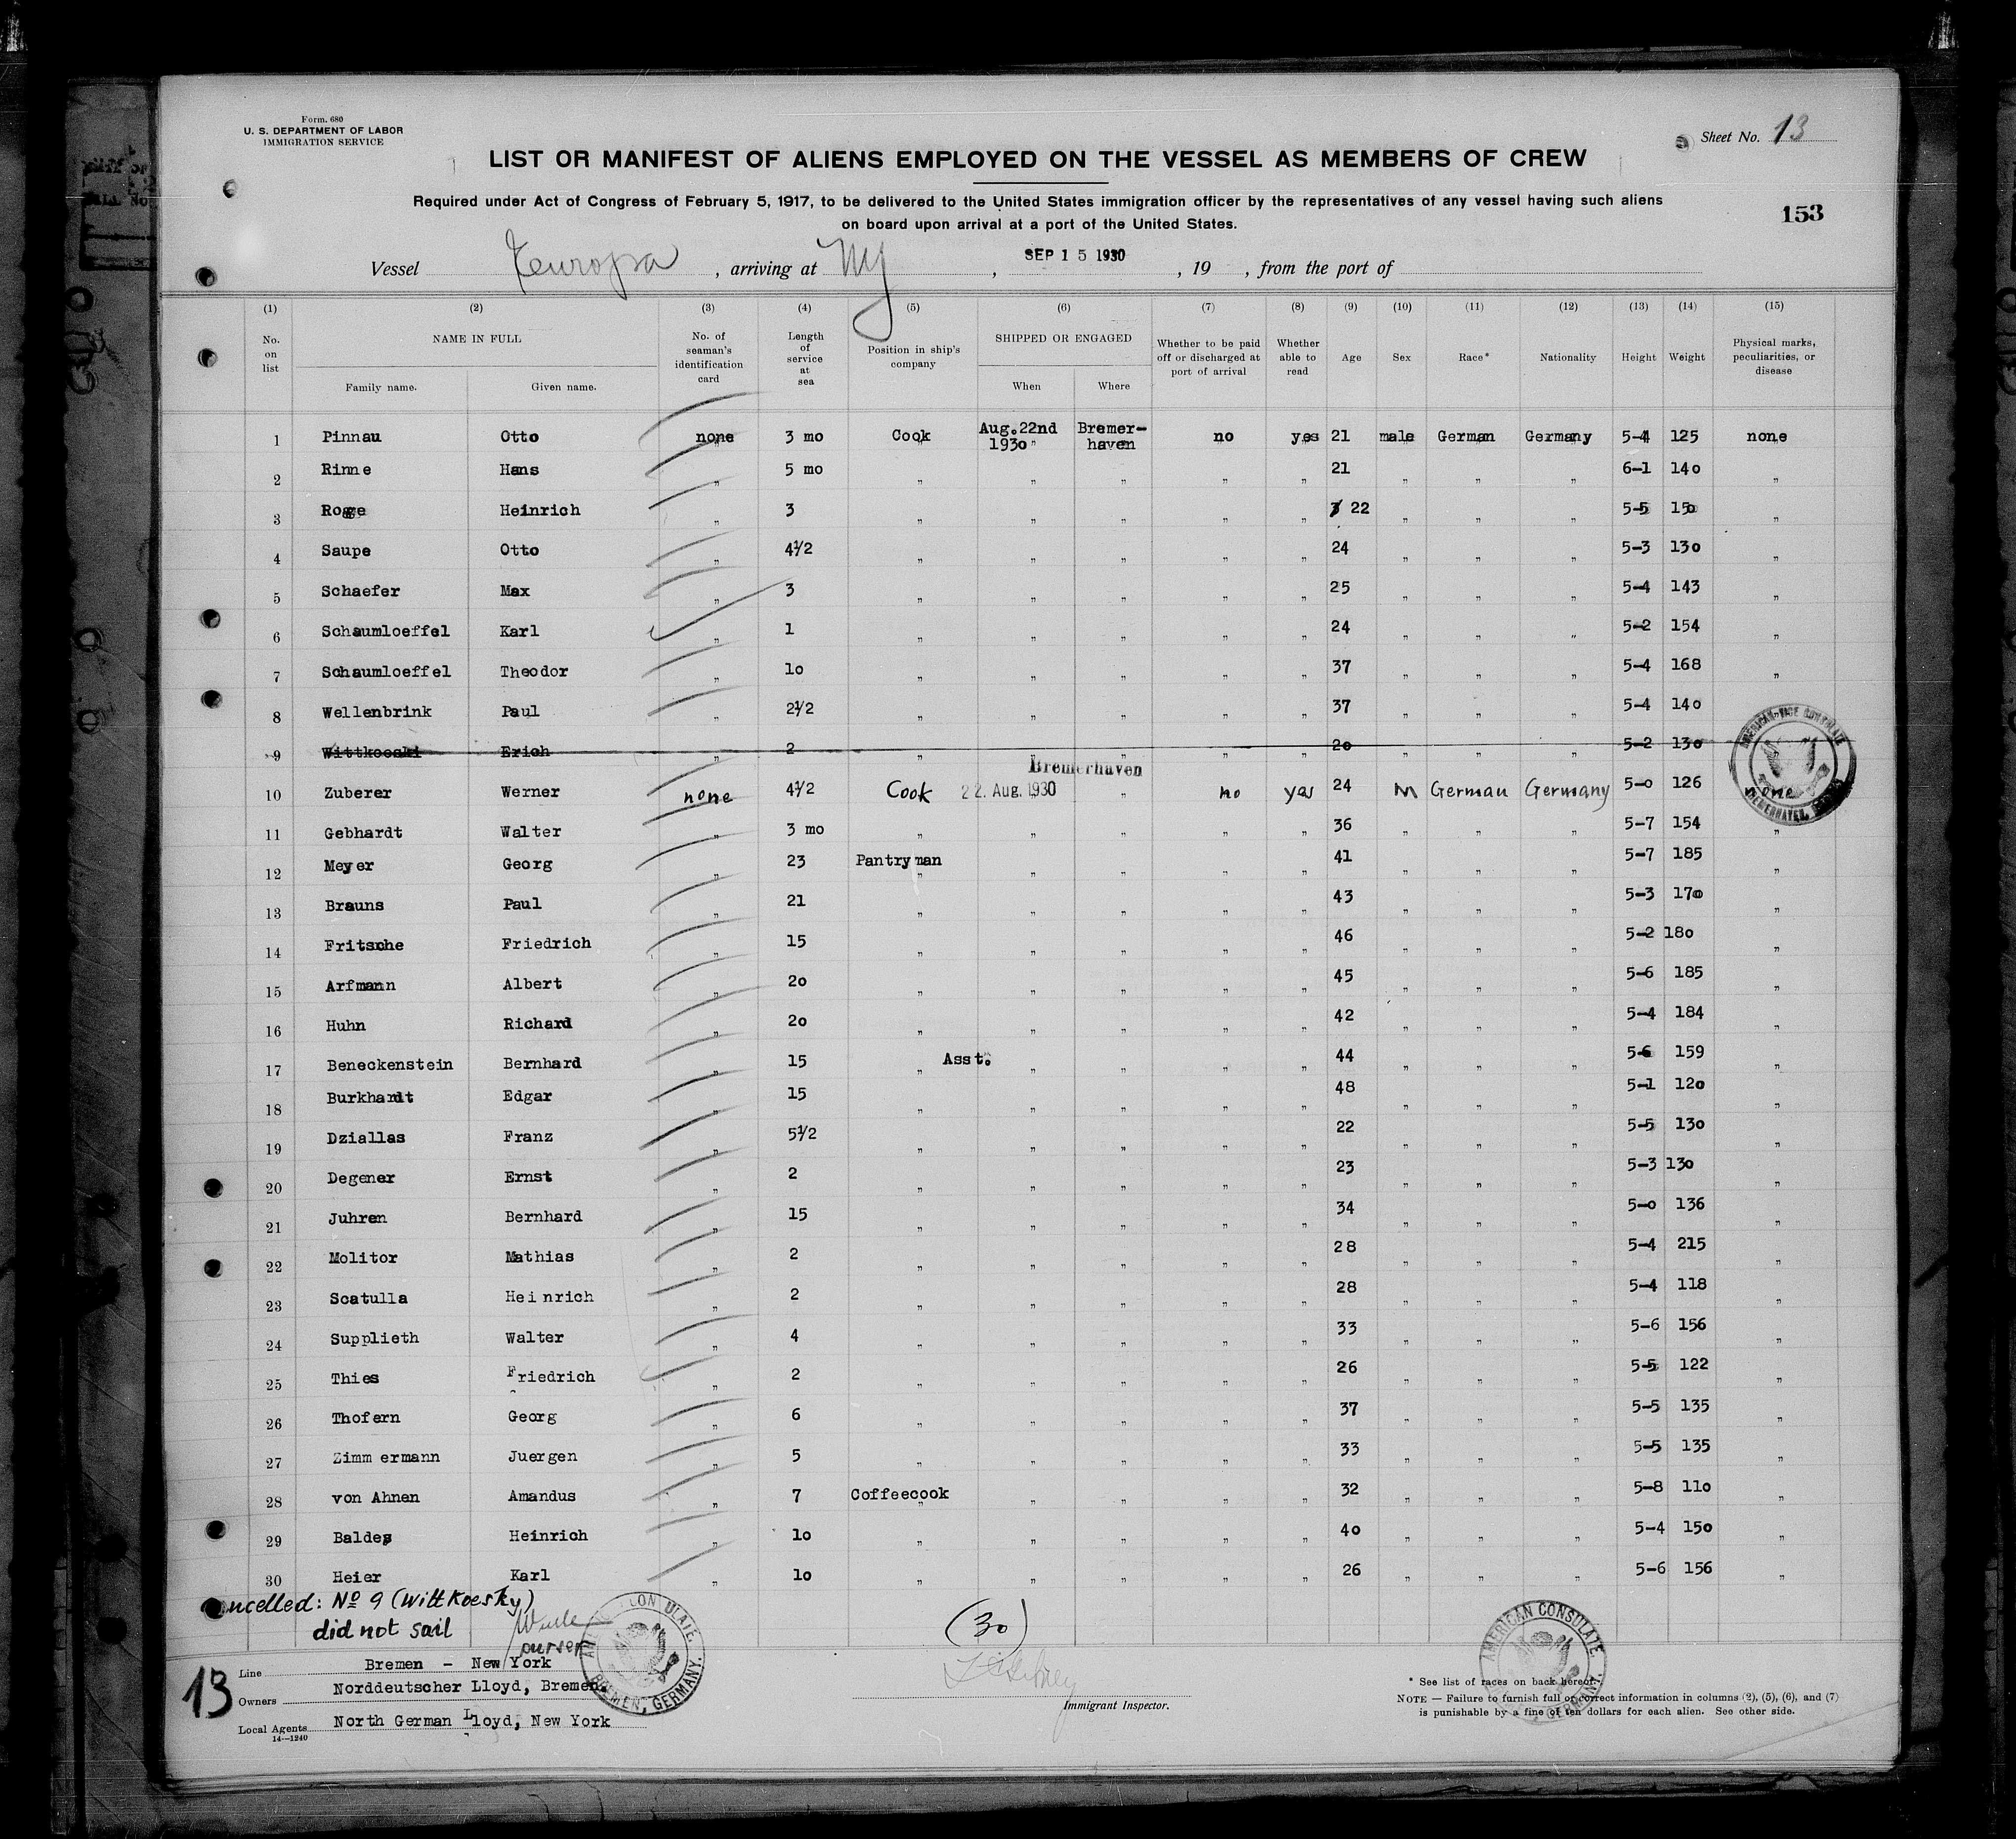 Form. 680
U. S. DEPARTMENT OF LABOR
IMMIGRATION SERVICE
Sheet No. 13
LIST OR MANIFEST OF ALIENS EMPLOYED ON THE VESSEL AS MEMBERS OF CREW
Required under Act of Congress of February 5, 1917, to be delivered to the United States immigration officer by the representatives of any vessel having such aliens
on board upon arrival at a port of the United States.
153
Vessel Europa, arriving at NY, SEP 15 1930, 19 , from the port of
(1) (2) (3) (4) (5) (6) (7) (8) (9) (10) (11) (12) (13) (14) (15)
No. on list NAME IN FULL Family name. Given name. No. of seaman's identification card Length of service at sea Position in ship's company SHIPPED OR ENGAGED When Where Whether to be paid off or discharged at port of arrival Whether able to read Age Sex Race* Nationality Height Weight Physical marks, peculiarities, or disease
1 Pinnau Otto none 3 mo Cook Aug. 22nd 1930 Bremerhaven no yes 21 male German Germany 5-4 125 none
2 Rinne Hans " 5 mo " " " " " 21 " " " 6-1 140 "
3 Rogge Heinrich " 3 " " " " " 22 " " " 5-5 150 "
4 Saupe Otto " 4½ " " " " " 24 " " " 5-3 130 "
5 Schaefer Max " 3 " " " " " 25 " " " 5-4 143 "
6 Schaumloeffel Karl " 1 " " " " " 24 " " " 5-2 154 "
7 Schaumloeffel Theodor " 10 " " " " " 37 " " " 5-4 168 "
8 Wellenbrink Paul " 2½ " " " " " 37 " " " 5-4 140 "
9 Wittkoeski Erich 2 " " " " " 20 " " " 5-2 130
Bremerhaven
10 Zuberer Werner none 4½ Cook 22. Aug. 1930 " no yes 24 M German Germany 5-0 126 none
11 Gebhardt Walter " 3 mo " " " " " 36 " " " 5-7 154 "
12 Meyer Georg " 23 Pantryman " " " " 41 " " " 5-7 185 "
13 Brauns Paul " 21 " " " " " 43 " " " 5-3 170 "
14 Fritsche Friedrich " 15 " " " " " 46 " " " 5-2 180 "
15 Arfmann Albert " 20 " " " " " 45 " " " 5-6 185 "
16 Huhn Richard " 20 " " " " " 42 " " " 5-4 184 "
17 Beneckenstein Bernhard " 15 " Asst. " " " " 44 " " " 5-6 159 "
18 Burkhardt Edgar " 15 " " " " " 48 " " " 5-1 120 "
19 Dziallas Franz " 5½ " " " " " 22 " " " 5-5 130 "
20 Degener Ernst " 2 " " " " " 23 " " " 5-3 130 "
21 Juhren Bernhard " 15 " " " " " 34 " " " 5-0 136 "
22 Molitor Mathias " 2 " " " " " 28 " " " 5-4 215 "
23 Scatulla Heinrich " 2 " " " " " 28 " " " 5-4 118 "
24 Supplieth Walter " 4 " " " " " 33 " " " 5-6 156 "
25 Thies Friedrich " 2 " " " " " 26 " " " 5-5 122 "
26 Thofern Georg " 6 " " " " " 37 " " " 5-5 135 "
27 Zimmermann Juergen " 5 " " " " " 33 " " " 5-5 135 "
28 von Ahnen Amandus " 7 Coffeecook " " " " 32 " " " 5-8 110 "
29 Baldes Heinrich " 10 " " " " " 40 " " " 5-4 150 "
30 Heier Karl " 10 " " " " " 26 " " " 5-6 156 "
ncelled: No 9 (Wittkoesky)
did not sail
purser
(30)
13
Line Bremen - New York
Owners Norddeutscher Lloyd, Bremen.
Local Agents North German Lloyd, New York
14—1240
AMERICAN CONSULATE. BREMEN, GERMANY.
Immigrant Inspector.
AMERICAN VICE CONSULATE BREMERHAVEN,
AMERICAN CONSULATE.
* See list of races on back hereof.
NOTE — Failure to furnish full or correct information in columns (2), (5), (6), and (7)
is punishable by a fine of ten dollars for each alien. See other side.